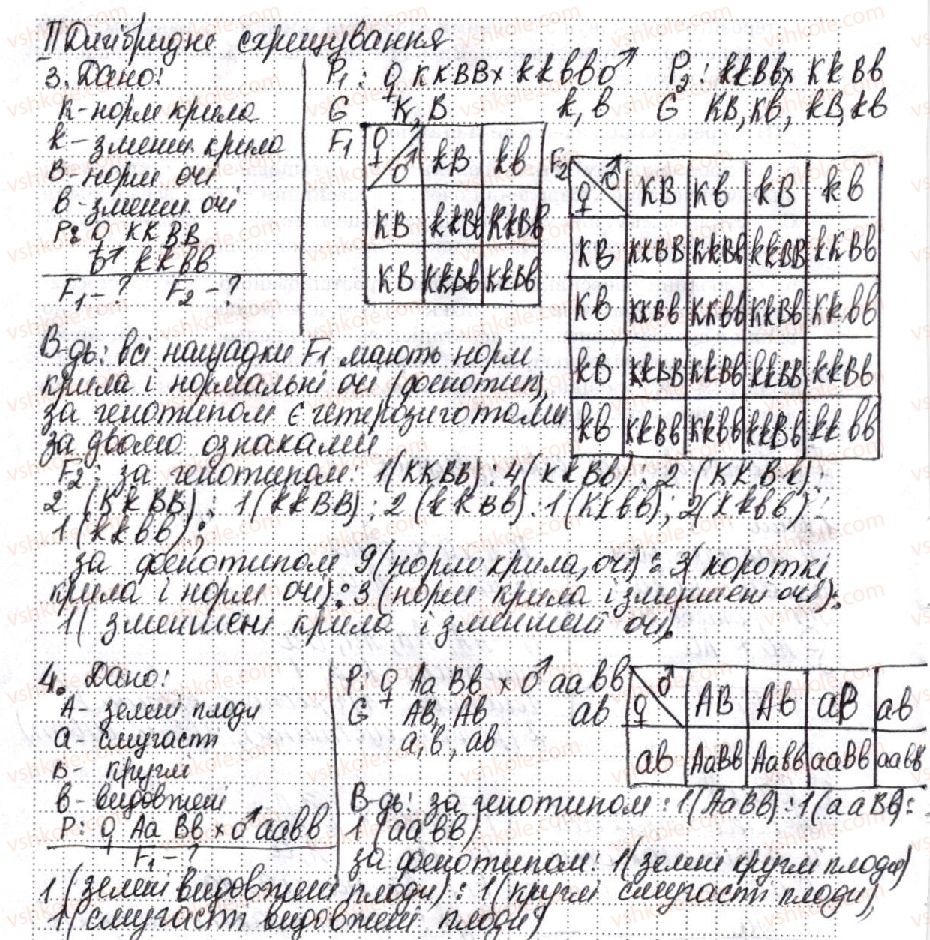 II Дигібридне схрещування
3. Дано:
K - норм крила
k - зменш. крила
B - норм очі
в - зменш очі
P: ♀ KKBB
♂ kkвв
F₁ - ? F₂ - ?
P₁: ♀ KKBB x kkвв ♂
G K, B k, в
P₂: KkBв
G KB, Kв, kB, kв
F₁ ♀ ♂ kB kв
KB
KB
F₂ ♂ ♀ KB Kв kB kв
KB KKBB KKBв KkBB KkBв
Kв KKBв KKвв KkBв Kkвв
kB KkBB KkBв kkBB kkBв
kв KkBв Kkвв kkBв kkвв
В-дь: всі нащадки F₁ мають норм
крила і нормальні очі (фенотип),
за генотипом є гетерозиготами
за двома ознаками
F₂: за генотипом: 1(KKBB) : 4(KkBв) : 2 (KKBв) :
2 (KkBB) : 1(kkBB) : 2 (kkBв) : 1(KKвв) ; 2(Kkвв) :
1(kkвв) ;
за фенотипом 9(норм крила, очі) : 3( короткі
крила і норм очі) : 3 (норм крила і зменшені очі) :
1( зменшені крила і зменшені очі).
4. Дано:
A - зелені плоди
a - смугасті
B - круглі
в - видовжені
P: ♀ AaBв x ♂ aaвв
F₁ - ?
P: ♀ AaBв x ♂ aaвв
G AB, Aв aв
a, в, aв
♂ ♀ AB Aв aB aв
aв AaBв Aaвв aaBв aaвв
В-дь: за генотипом : 1(AaBв) : 1(aaBв) :
1(aaвв)
за фенотипом: 1(зелені круглі плоди)
1 (зелені видовжені плоди) : 1(круглі смугасті плоди),
1(смугасті видовжені плоди)